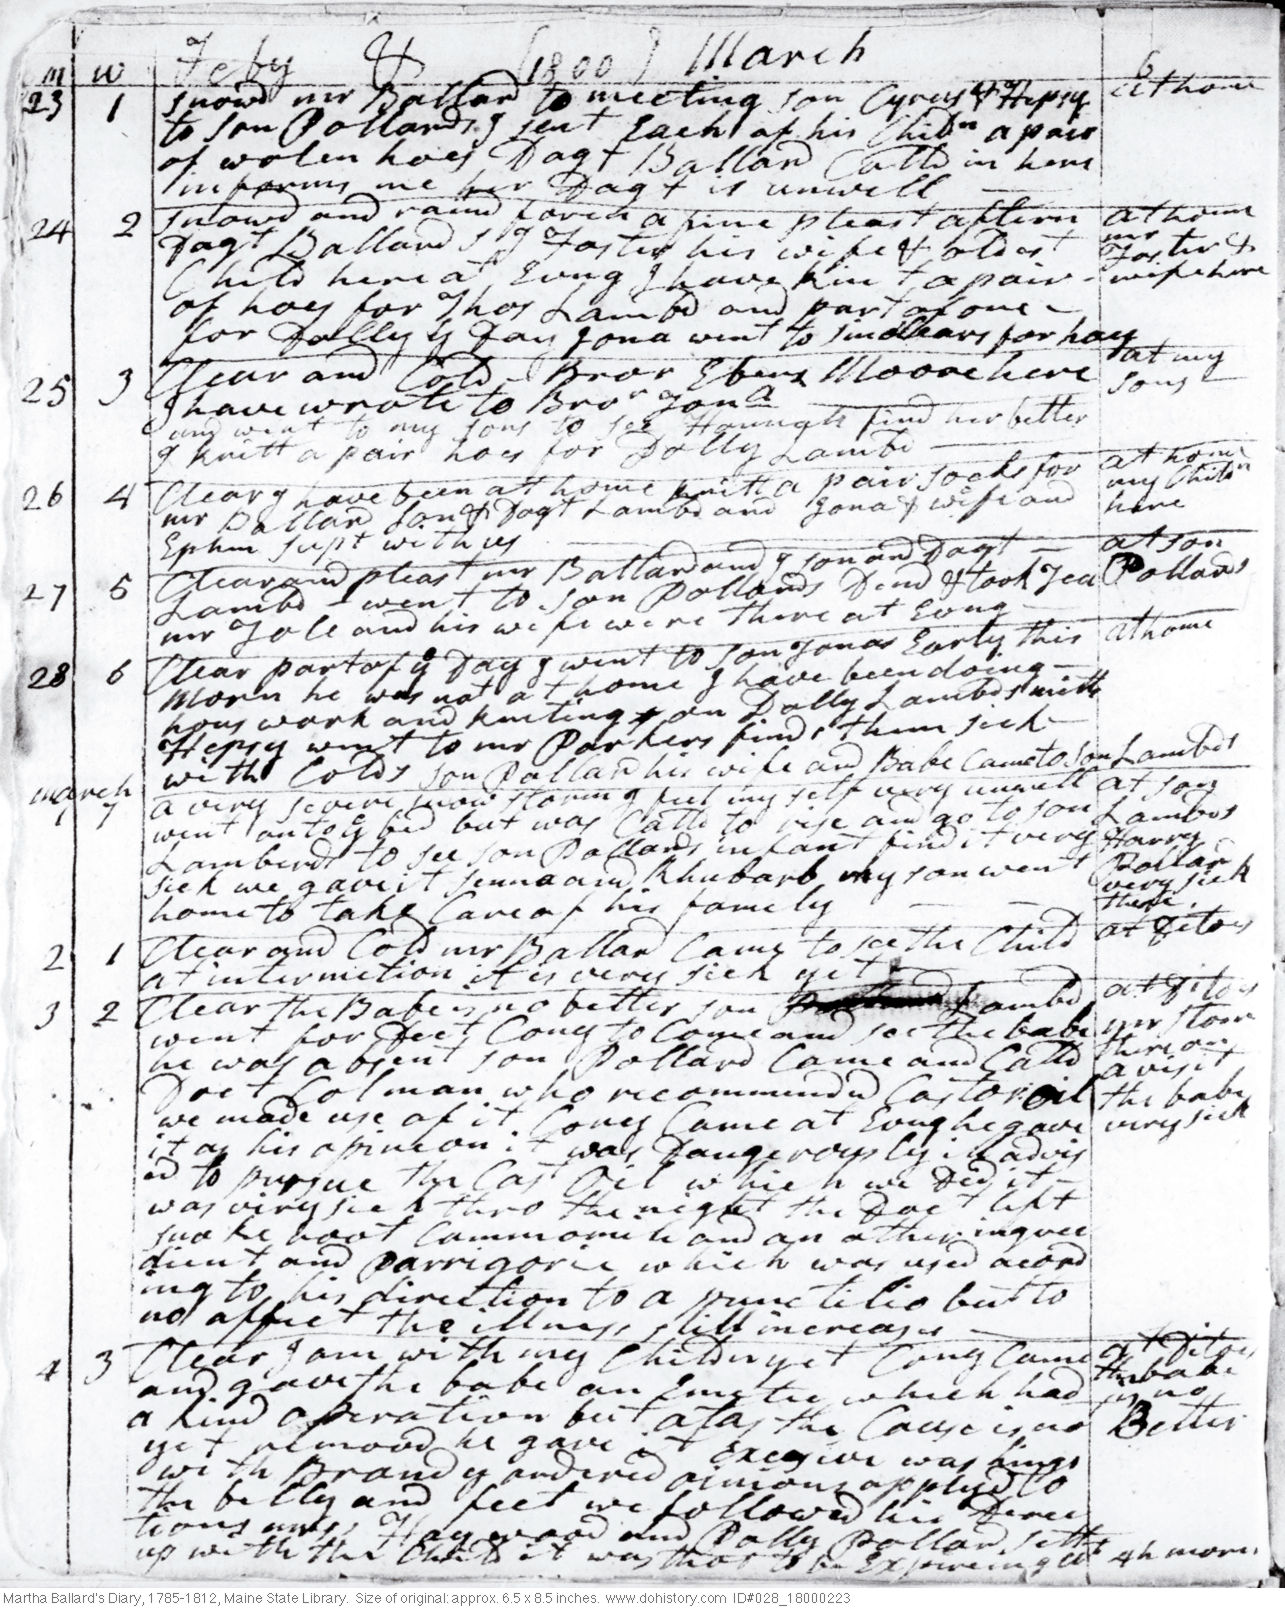 m w Feby & [1800] March 6
23 1 Snowd mr Ballard to meeting son Cyrus & Hepsy at home
to son Pollards I sent Each of his Childn a pair
of wolen hoes Dagt Ballard Calld in here
informs me her Dagt is unwell
24 2 Snowd and raind foren a fine pleast aftern at home
Dagt Ballard & J Foster his wife & oldest mr Foster &
Child here at Evng I have knit a pair wife here
of hoes for Thos Lambd and part of one
for Dolly ye Day Jona went to Sinclears for hay
25 3 Clear and Cold Bror Ebenz Moore here at my
I have wrote to Bror Jona sons
and went to my sons to see Hannah find her better
I knitt a pair hoes for Dolly Lambd
26 4 Clear I have been at home knitt a pair socks for at home
mr Ballard Son & Dagt Lambd and Jona & wife and my Childn
Ephm supt with us here
27 5 Clear and pleast mr Ballard and I son and Dagt at son
Lambd went to son Pollards Dind & took Tea Pollards
mr Tole and his wife were there at Evng
28 6 Clear part of ye Day I went to son Jonas Early this at home
morn he was not at home I have been doing
hous work and knitting on Dolly Lambds mitts
Hepsy went to mr Parkers finds them sick
with Colds son Pollard his wife and Babe Came to son Lambds
march
1 7 a very severe snow storm I feel my self very unwell at son
went onto ye bed but was Calld to rise and go to son Lambds
Lamberds to see son Pollards infant find it very Harry
sick we gave it senna and Rhubarb my son went Pollard
home to take Care of his famely very sick there
2 1 Clear and Cold mr Ballard Came to see the Child at Ditoes
at intermetion it is very sick yet
3 2 Clear the Babe is no better son Lambd at Ditoes
went for Doct Cony to Come and see the babe mr Stone
he was absent son Pollard Came and Calld there on
Doct Colman who recommended Castor oil a visit
we made use of it Cony Came at Evng he gave the babe
it as his opineon it was Dangerously ill advis very sick
ed to pursue the Cas Oil which we Did it
was very sick thro the night the Doct left
snake root Cammomile and an other ingree
dient and parrigoric which was used acord
ing to his direction to a punctilio but to
no affect the illness still increases
4 3 Clear I am with my Childn yet Cony Came at Ditoes
and gave the babe an Emetic which had the babe
a kind operation but alas the Cause is no is no
yet remoovd he gave it Excesive washings Better
with Brandy ordered oinions applyd to
the belly and feet we followed his Direc
tions mrss Haywood and Polly Pollard sett
up with the Child it was thot to be Expireing at 4 h morn